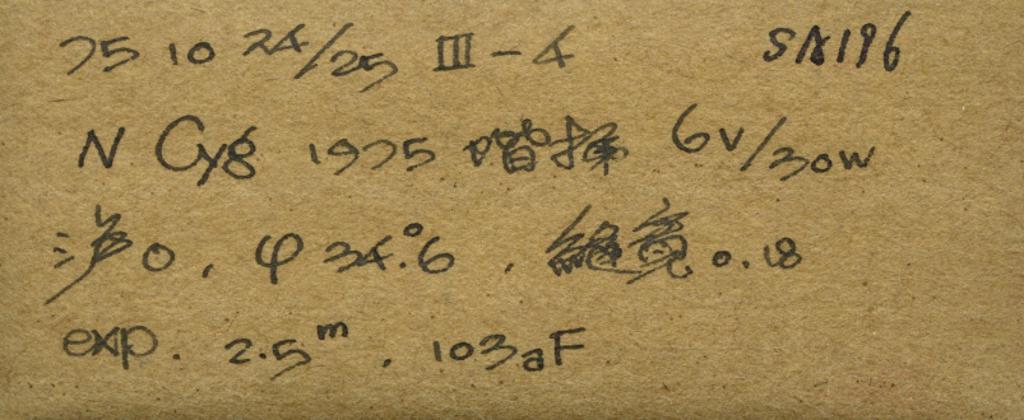 75 10 24/25 III-4
N Cyg 1975 階梯 6V/30W
0, φ 34.°6, 縫寬 0.18
exp. 2.5ᵐ, 103aF